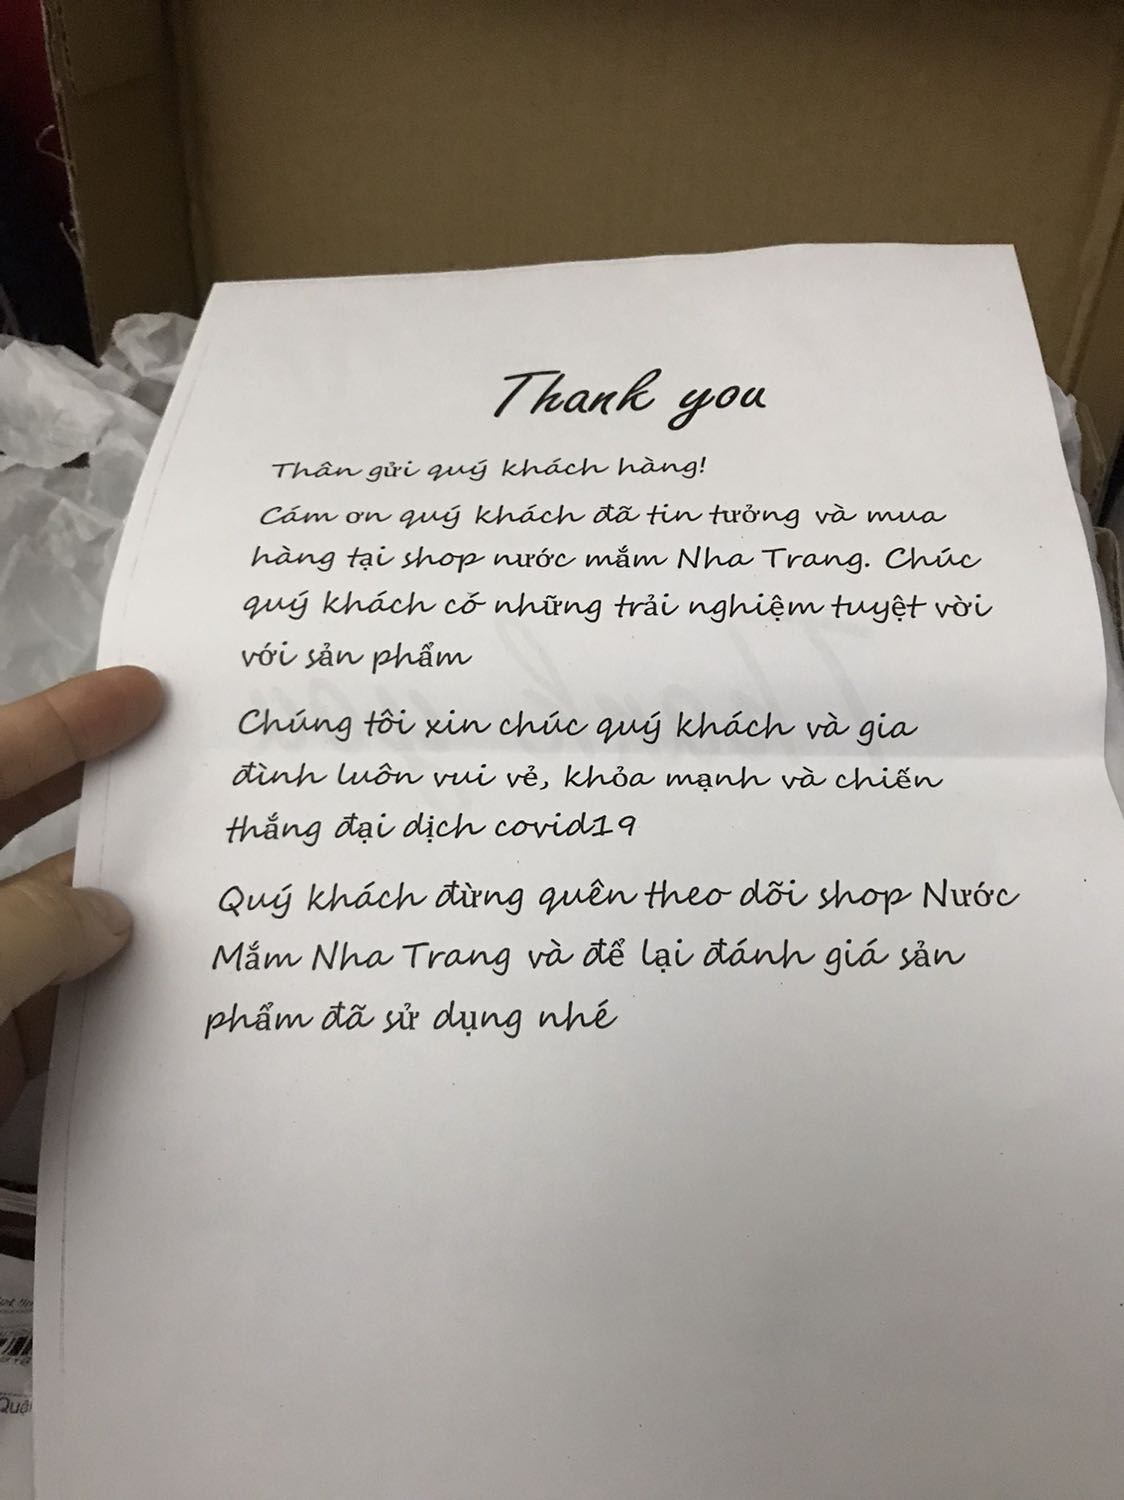 Thank you
Thân gửi quý khách hàng!
Cám ơn quý khách đã tin tưởng và mua
hàng tại shop nước mắm Nha Trang. Chúc
quý khách có những trải nghiệm tuyệt vời
với sản phẩm
Chúng tôi xin chúc quý khách và gia
đình luôn vui vẻ, khỏa mạnh và chiến
thắng đại dịch covid19
Quý khách đừng quên theo dõi shop Nước
Mắm Nha Trang và để lại đánh giá sản
phẩm đã sử dụng nhé